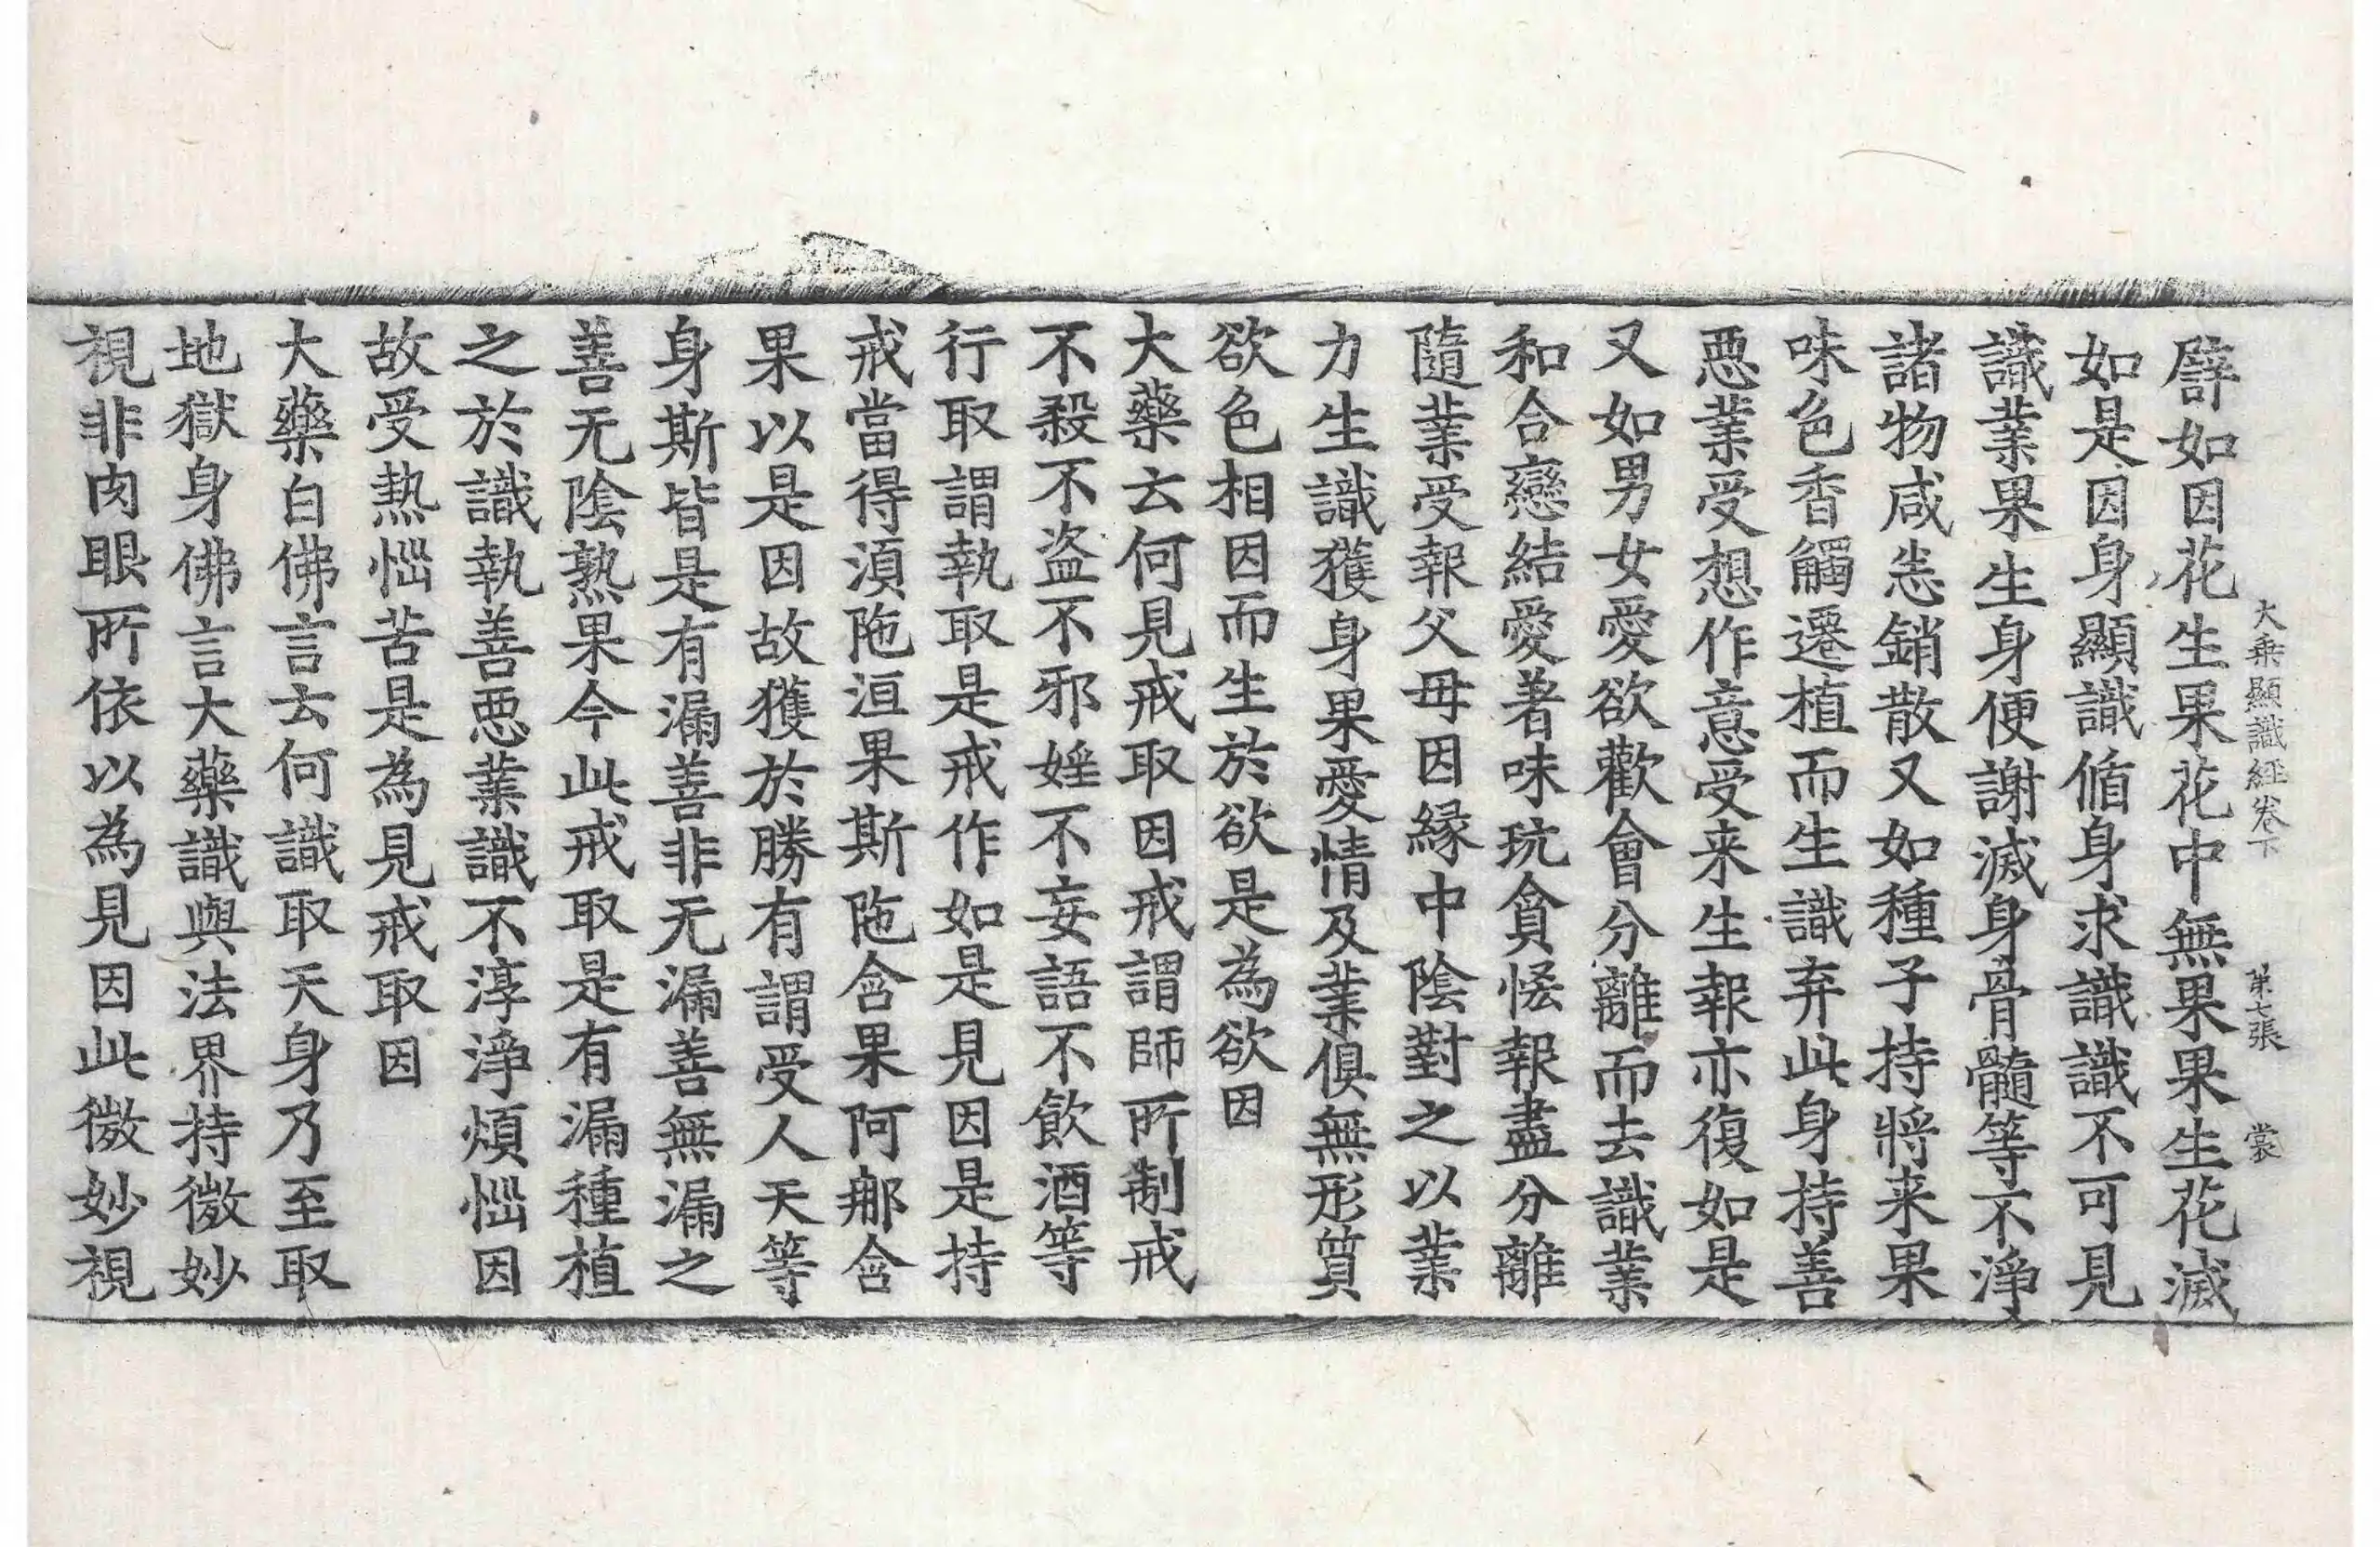 大乗顯識經卷下　第七張　裳
譬如因花生果花中無果果生花滅
如是因身顯識循身求識識不可見
識業果生身便謝滅身骨髓等不淨
諸物咸恙銷散又如種子持將来果
味色香觸遷植而生識弃此身持善
惡業受想作意受来生報亦復如是
又如男女愛欲歡會分離而去識業
和合戀結愛著味玩貪恡報盡分離
隨業受報父母因緣中陰對之以業
力生識獲身果愛情及業俱無形質
欲色相因而生於欲是為欲因
大藥云何見戒取因戒謂師所制戒
不殺不盗不邪婬不妄語不飲酒等
行取謂執取是戒作如是見因是持
戒當得湏陁洹果斯陁含果阿那含
果以是因故獲於勝有謂受人天等
身斯皆是有漏善非无漏善無漏之
善无陰熟果今此戒取是有漏種植
之於識執善惡業識不淳淨煩惱因
故受熱惱苦是為見戒取因
大藥白佛言云何識取天身乃至取
地獄身佛言大藥識與法界持微妙
視非肉眼所依以為見因此微妙視